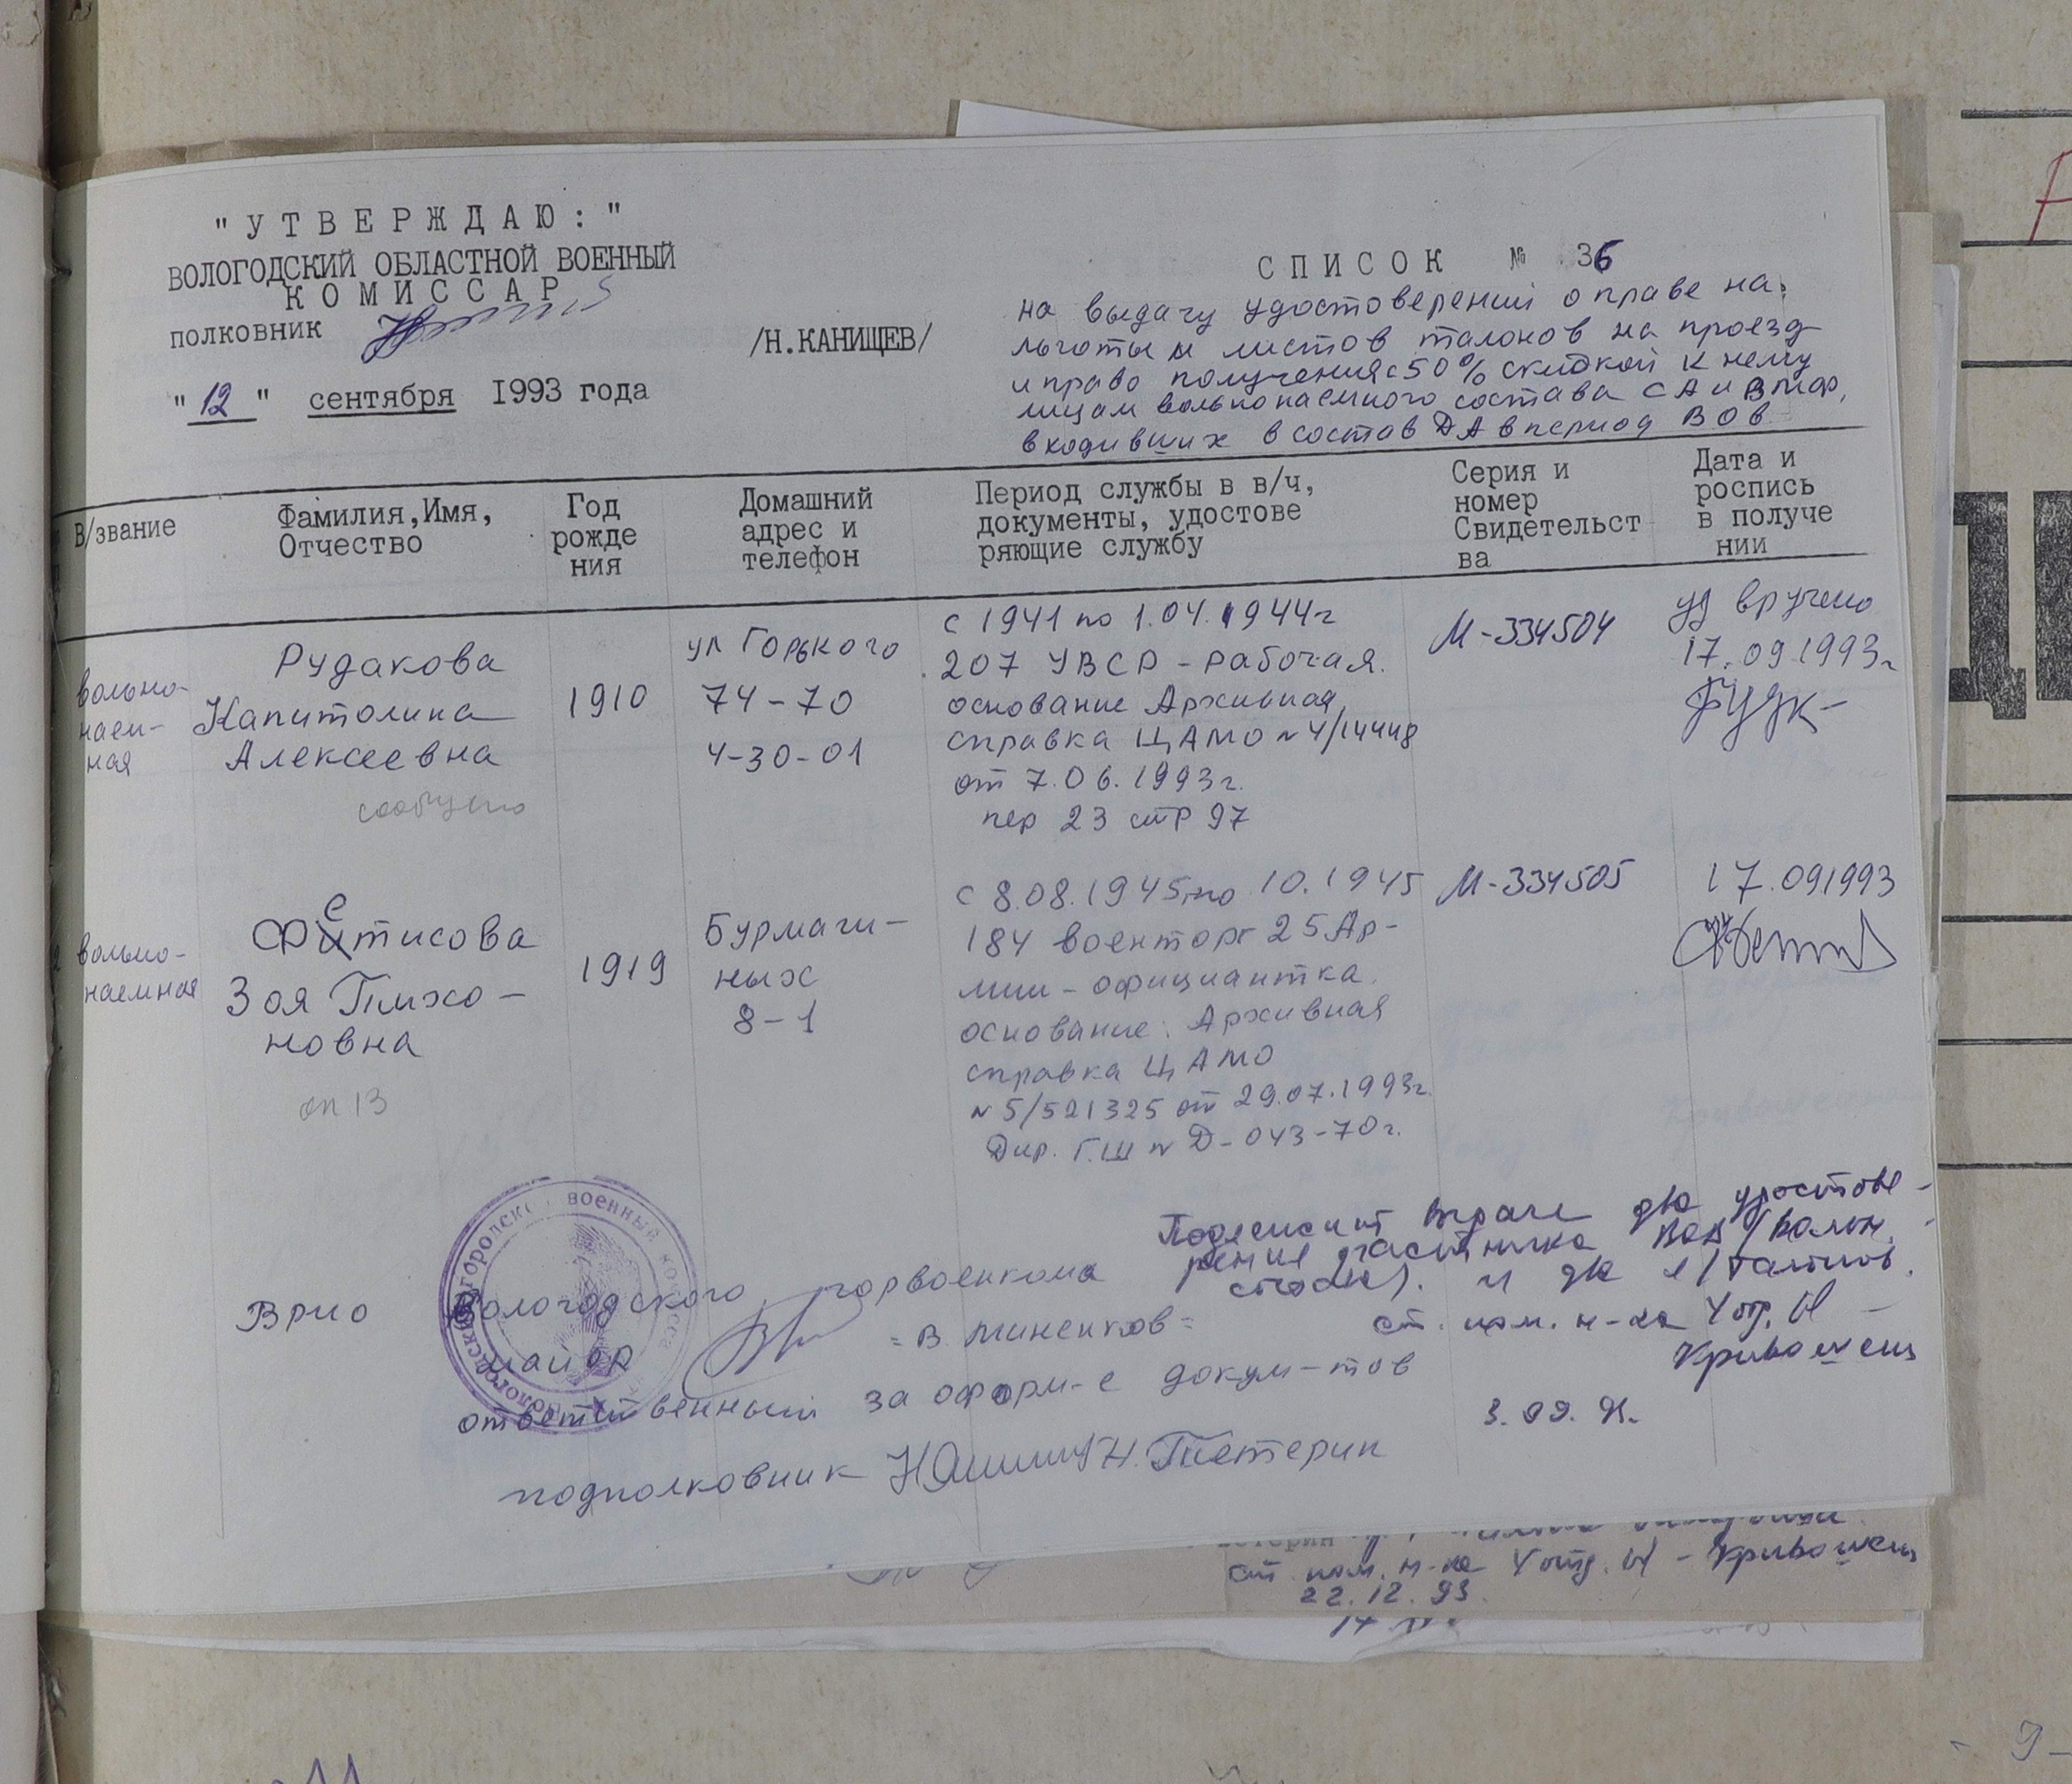 "УТВЕРЖДАЮ:"
ВОЛОГОДСКИЙ ОБЛАСТНОЙ ВОЕННЫЙ
КОМИССАР
полковник
/Н.КАНИЩЕВ/
"12" сентября 1993 года
СПИСОК № 36
на выдачу удостоверений о праве на
льготы и листов талонов на проезд
и право получения с 50% скидкой к нему
лицам вольнонаемного состава СА и ВМФ,
входивших в состав ДА в период ВОв
В/звание
Фамилия,Имя,
Отчество
Год
рожде
ния
Домашний
адрес и
телефон
Период службы в в/ч,
документы, удостове
ряющие службу
Серия и
номер
Свидетельст
ва
Дата и
роспись
в получе
нии
вольно-
наем-
ная
Рудакова
Капитолина
Алексеевна
сообщено
1910
ул Горького
74-70
4-30-01
с 1941 по 1.04.1944г
207 УВСР - рабочая.
основание Архивная
справка ЦАМО № 4/14448
от 7.06.1993г.
пер 23 стр 97
М-334504
уд вручено
17.09.1993г
2 вольно-
наемная
Фетисова
Зоя Тихо-
новна
оп 13
1919
Бурмаги-
ных
8-1
с 8.08.1945 по 10.1945
184 военторг 25 Ар-
мии - официантка.
основание: Архивная
справка ЦАМО
№ 5/521325 от 29.07.1993г.
Дир. ГШ № Д-043-70г.
М-334505
17.091993
Подлежит выдаче два удостове-
рения участника ВОВ /вольн.
состав/. и два л/талонов.
ст. пом. н-ка 4 отд.
Кривошеин
3.09.93.
Врио Вологодского горвоенкома
майор =В Миненков=
ответственный за оформ-е докум-тов
подполковник Н. Тетерин
Вологодский городской военный комиссариат
етерин
ст. пом. н-ка 4 отд. - Кривошеин
22.12.93.